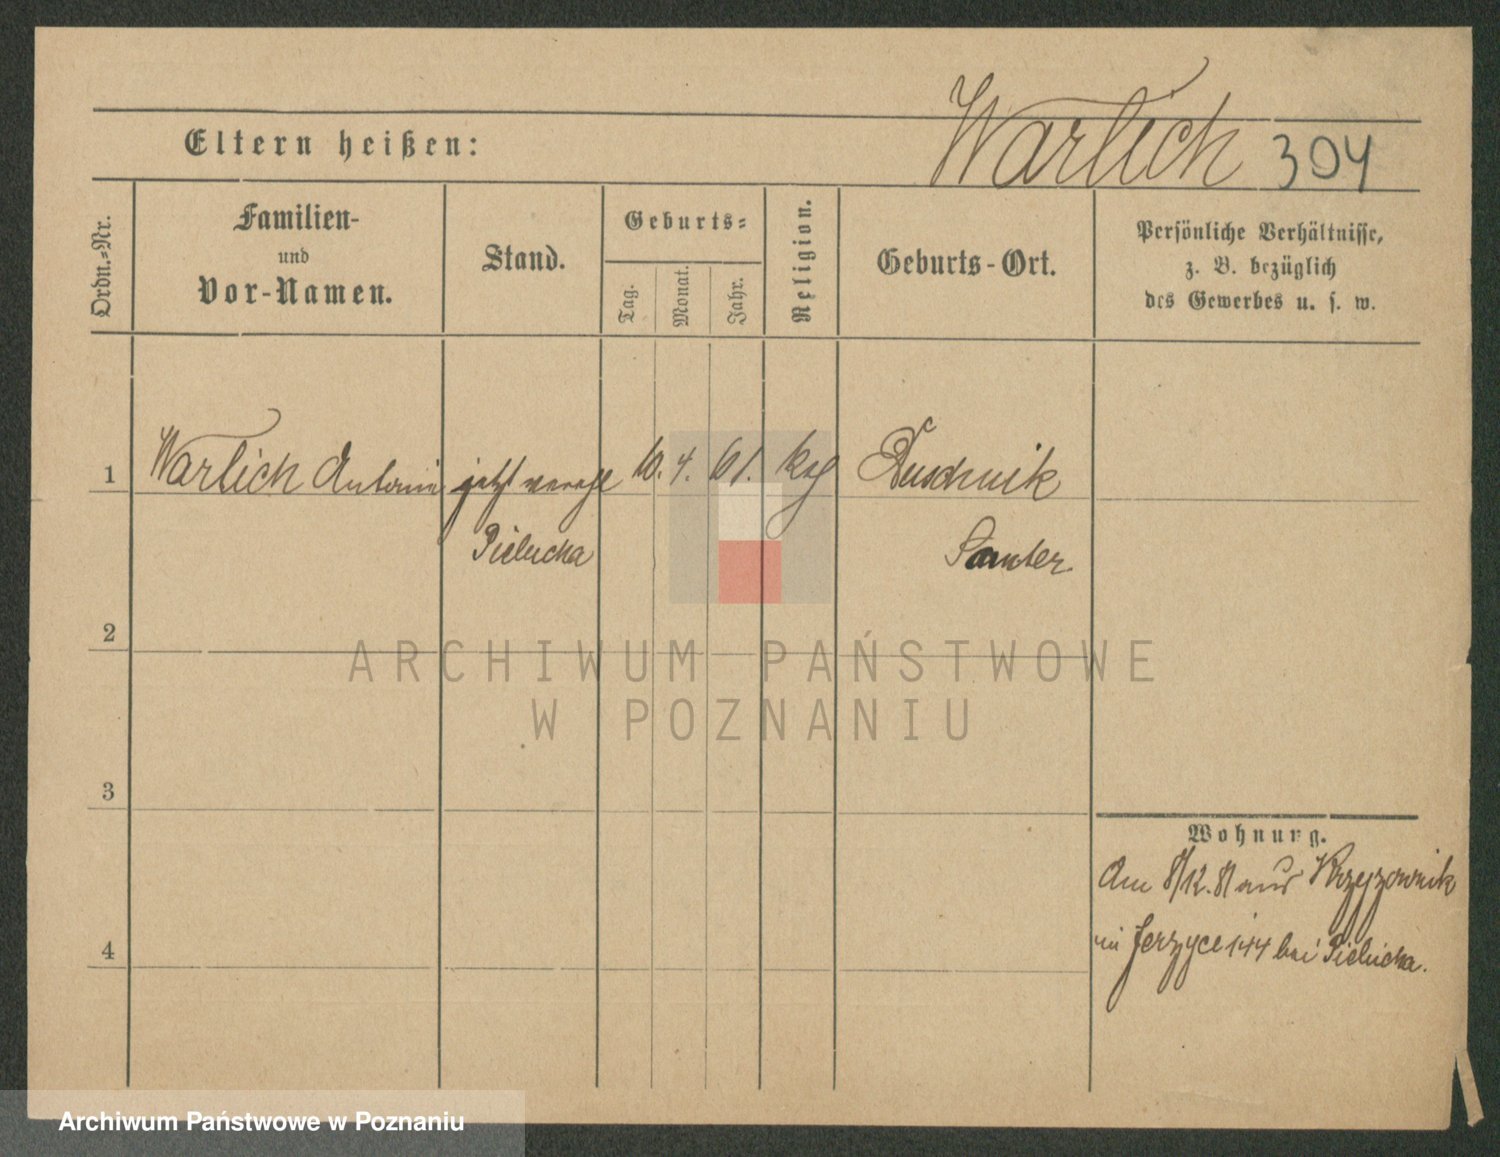 Warlich 304
Eltern heißen:
Ordn.-Nr.
Familien-
und
Vor-Namen.
Stand.
Geburts-
Tag.
Monat.
Jahr.
Religion.
Geburts-Ort.
Persönliche Verhältnisse,
z. B. bezüglich
des Gewerbes u. s. w.
1 Warlich Antonie jetzt verehl 10. 4. 61. kth Duschnik
Pielucha Samter
2
ARCHIWUM PAŃSTWOWE
W POZNANIU
3
Wohnung.
Am 8/12.81 aus Krzyzownik
in Jerzyce 144 bei Pielucha.
4
Archiwum Państwowe w Poznaniu